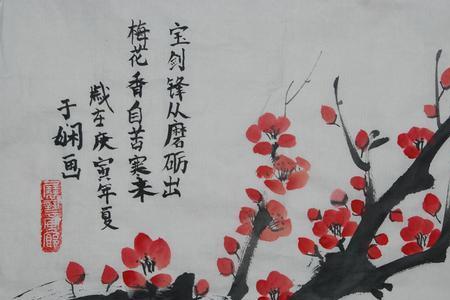 宝剑锋从磨砺出
梅花香自苦寒来
歲在庚寅年夏
于娴画